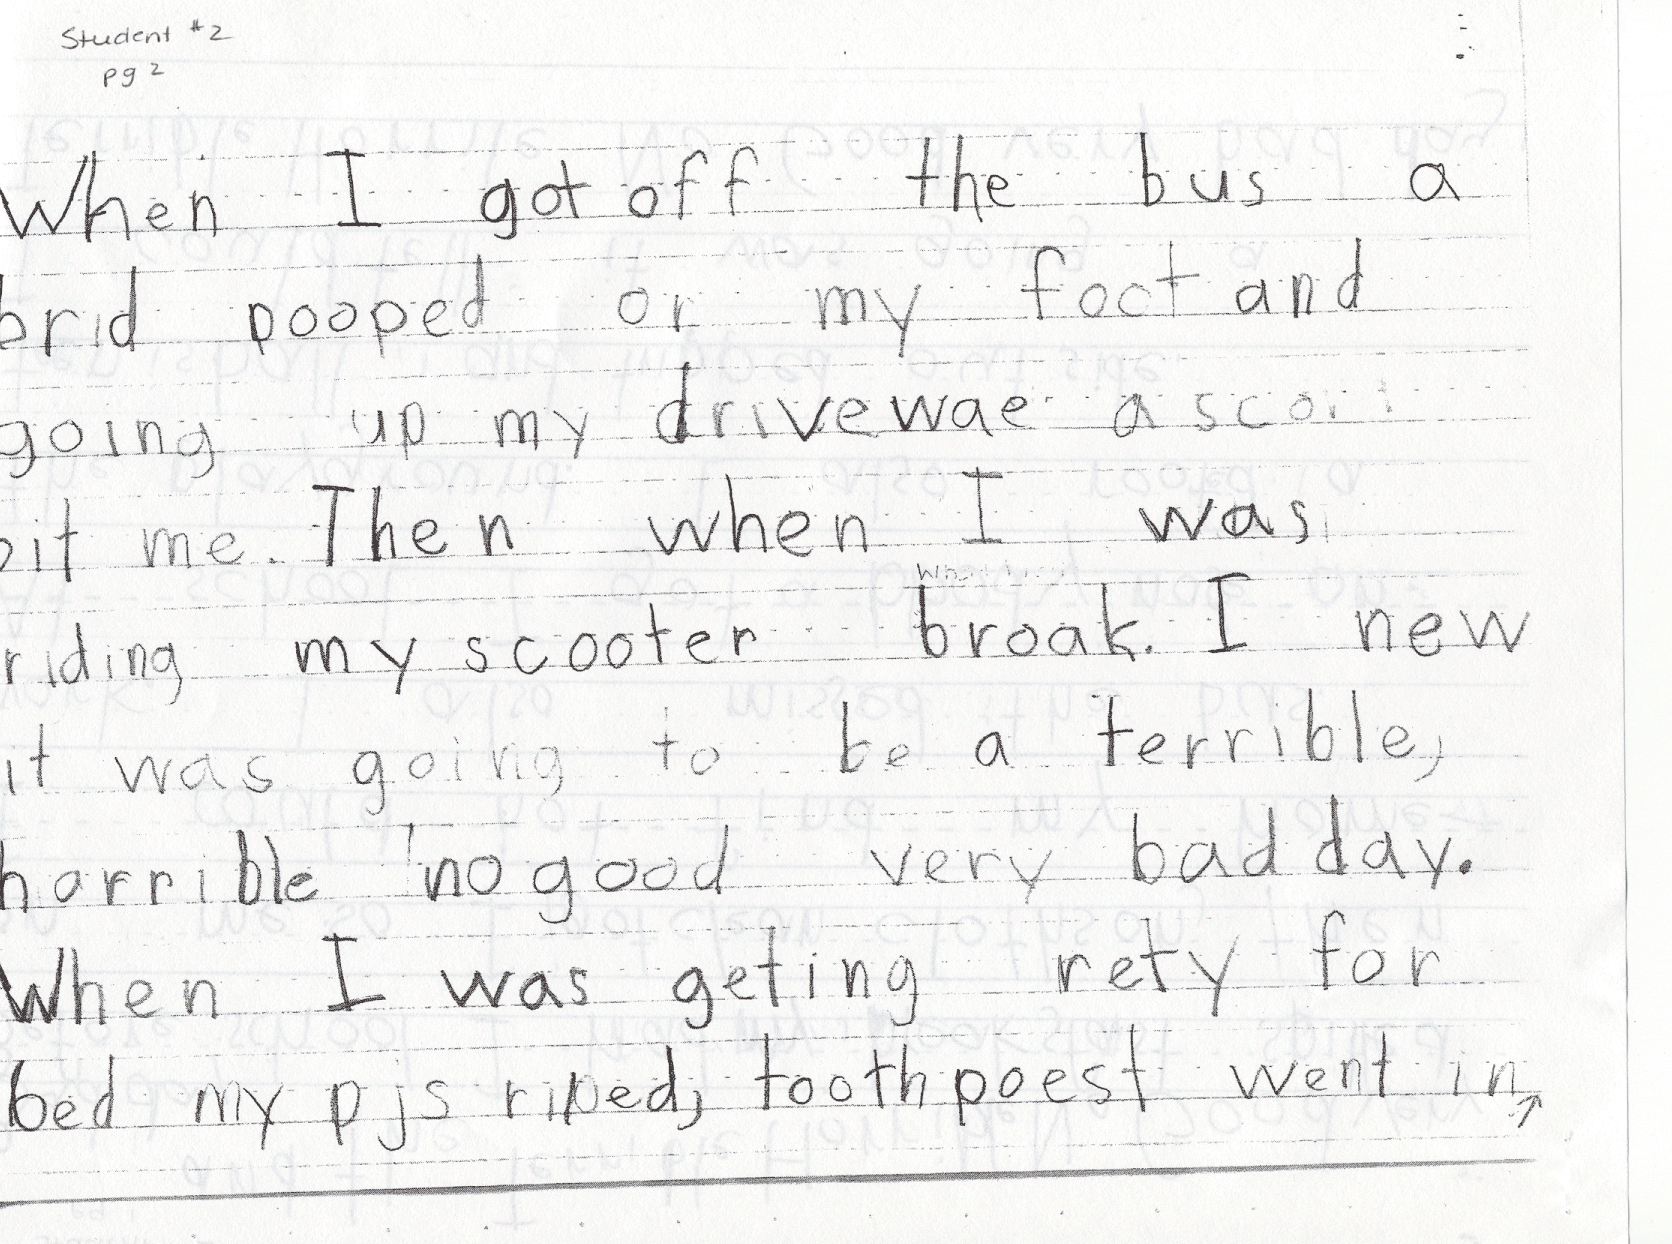 Student #2
pg 2
When I got off the bus a
brid pooped or my foot and
going up my drivewae a scor
bit me. Then when I was
riding my scooter broak. I new
it was going to be a terrible,
horrible no good very bad day.
When I was geting rety for
bed my pjs riped, toothpoest went in